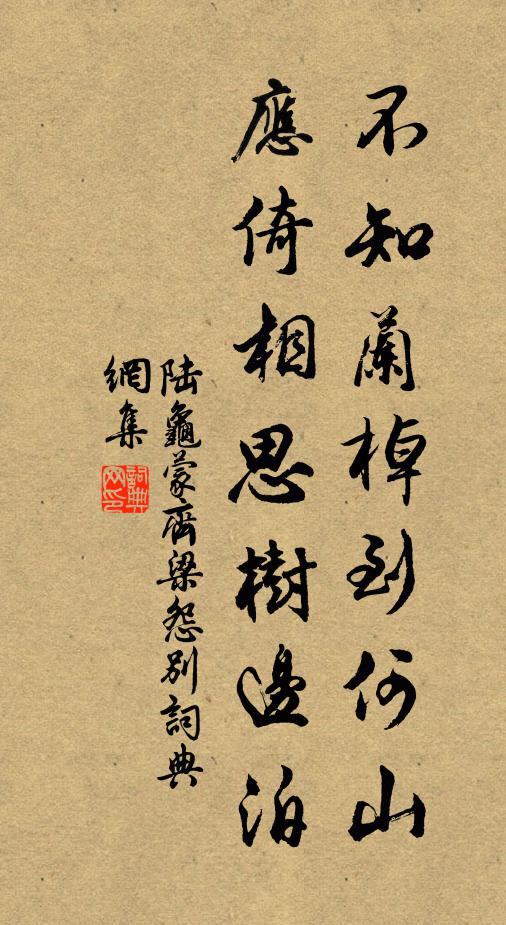 不知蘭棹到何山
應倚相思樹邊泊
陆龜蒙齊梁怨別詞典
網集
詞典